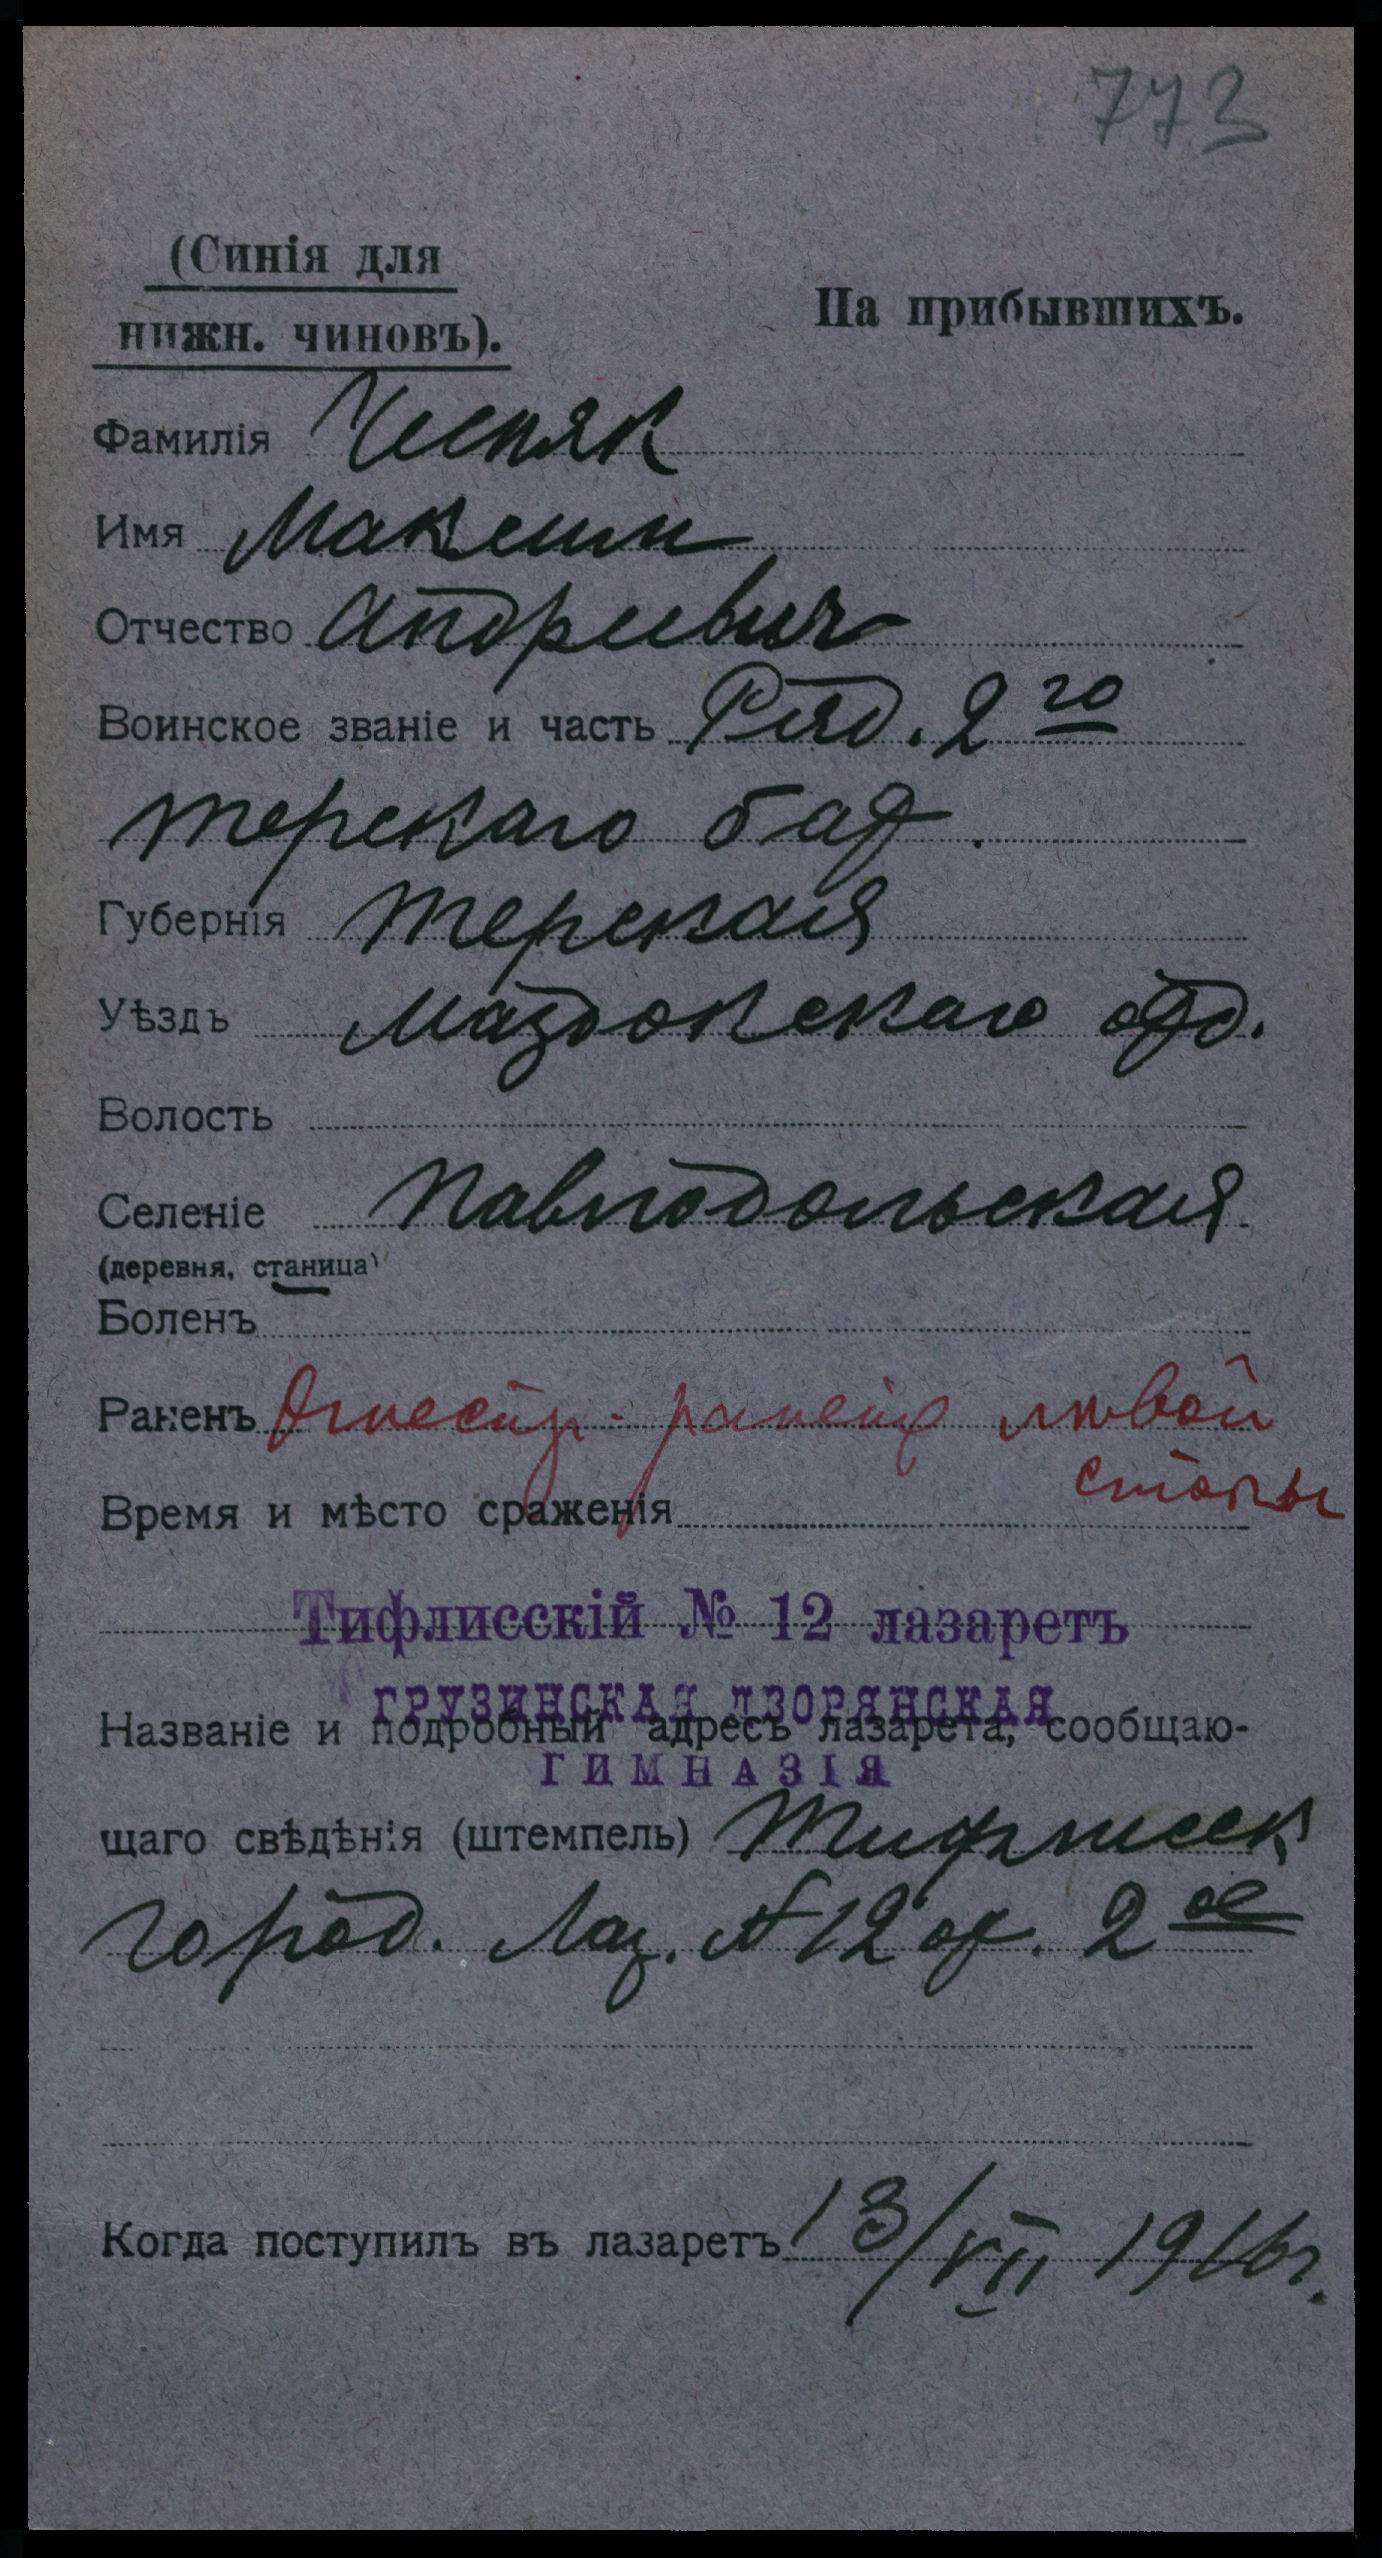 773
(Синія для
нижн. чиновъ).
На прибывшихъ.
Фамилія Чесняк
Имя Максим
Отчество Андреевич
Воинское званіе и часть Ряд. 2го
терскаго бат.
Губернія Терская
Уѣздъ Маздокскаго отд.
Волость
Селеніе Павлодольская
(деревня, станица)
Боленъ
Раненъ Огнестр. ранение лѣвой
стопы
Время и мѣсто сраженія
Тифлисскій № 12 лазаретъ
ГРУЗИНСКАЯ ДВОРЯНСКАЯ
Названіе и подробный адресъ лазарета, сообщаю-
ГИМНАЗІЯ
щаго свѣдѣнія (штемпель) Тифлисск
город. Лаз. № 12 от. 2ое
Когда поступилъ въ лазаретъ 13/VII 1916г.